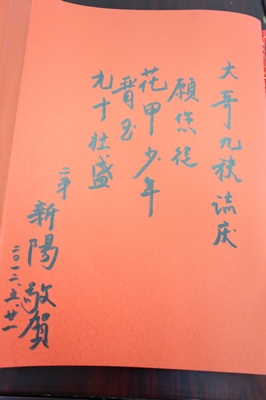 大哥九秩誌庆
願您從
花甲少年
晋至
九十壮盛
二弟
新陽敬賀
二〇一二、五、廿一